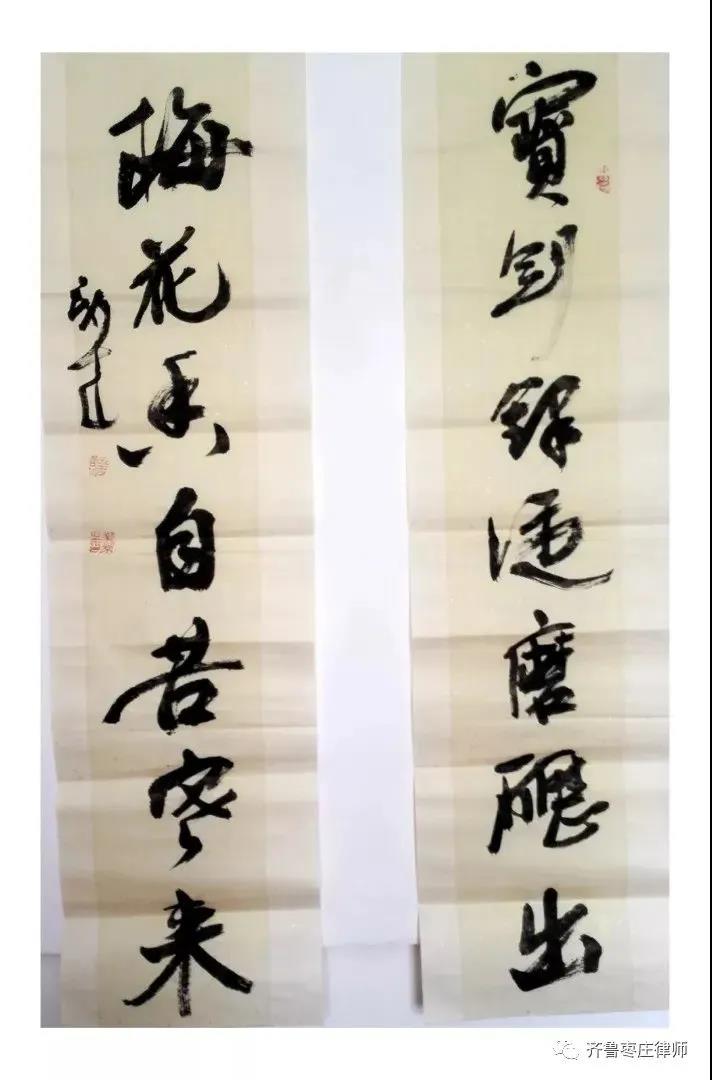 寶劍鋒從磨礪出
梅花香自苦寒来
齐鲁枣庄律师